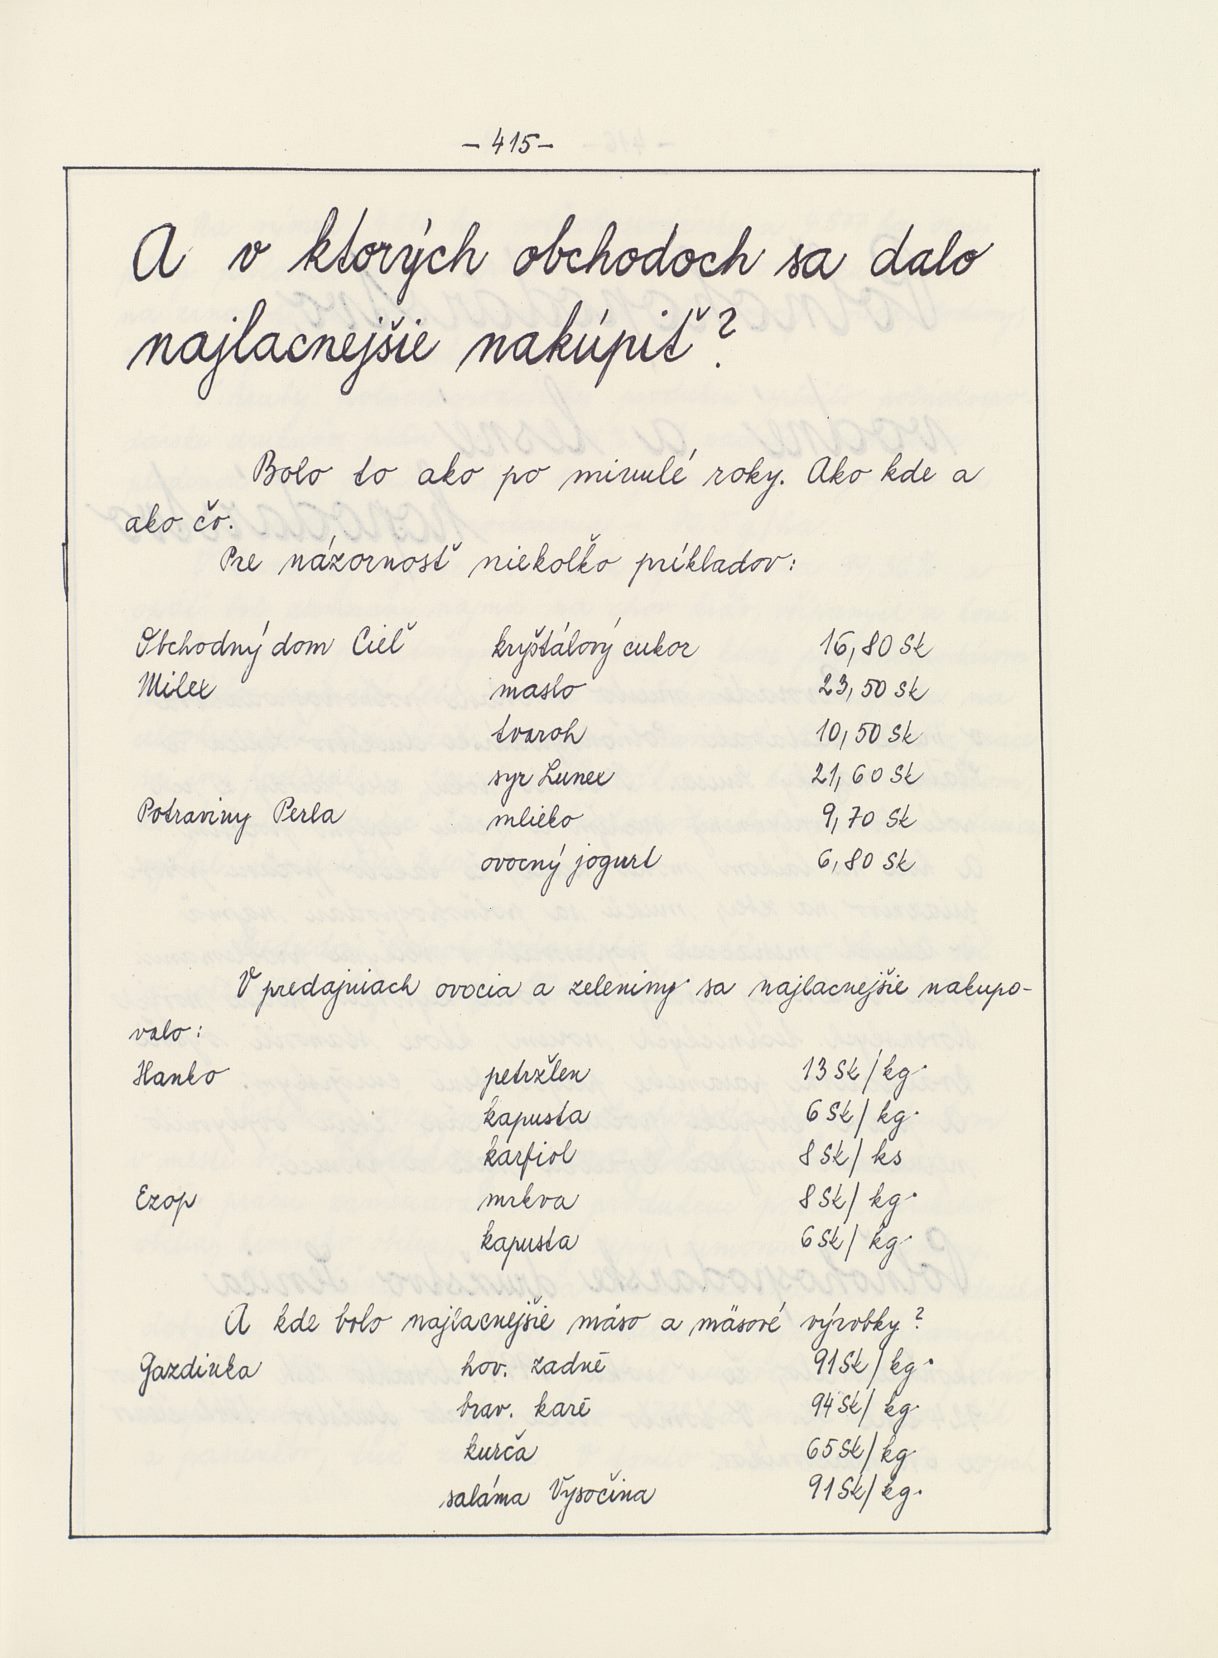 - 415-
A v ktorých obchodoch sa dalo
najlacnejšie nakúpiť?
Bolo to ako po minulé roky. Ako kde a
ako čo.
Pre názornosť niekoľko príkladov:
Obchodný dom Cieľ kryštálový cukor 16,80 Sk
Milex maslo 23,50 Sk
tvaroh 10,50 Sk
syr Lunex 21,60 Sk
Potraviny Perla mlieko 9,70 Sk
ovocný jogurt 6,80 Sk
V predajniach ovocia a zeleniny sa najlacnejšie nakupo-
valo:
Hanko petržlen 13 Sk/kg.
kapusta 6 Sk/kg.
karfiol 8 Sk/ks
Ezop mrkva 8 Sk/kg.
kapusta 6 Sk/kg.
A kde bolo najlacnejšie mäso a mäsové výrobky?
Gazdinka hov. zadné 91 Sk/kg.
brav. karé 94 Sk/kg.
kurča 65 Sk/kg.
saláma Vysočina 91 Sk/kg.